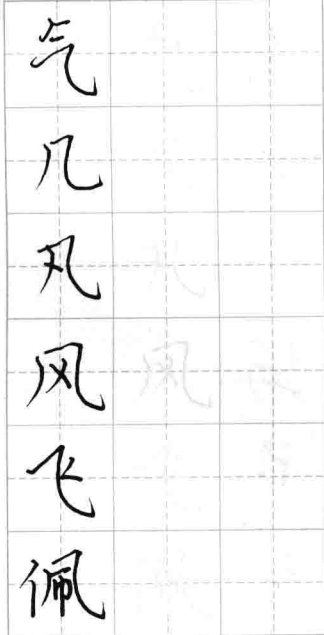 气
几
凡
风
飞
佩